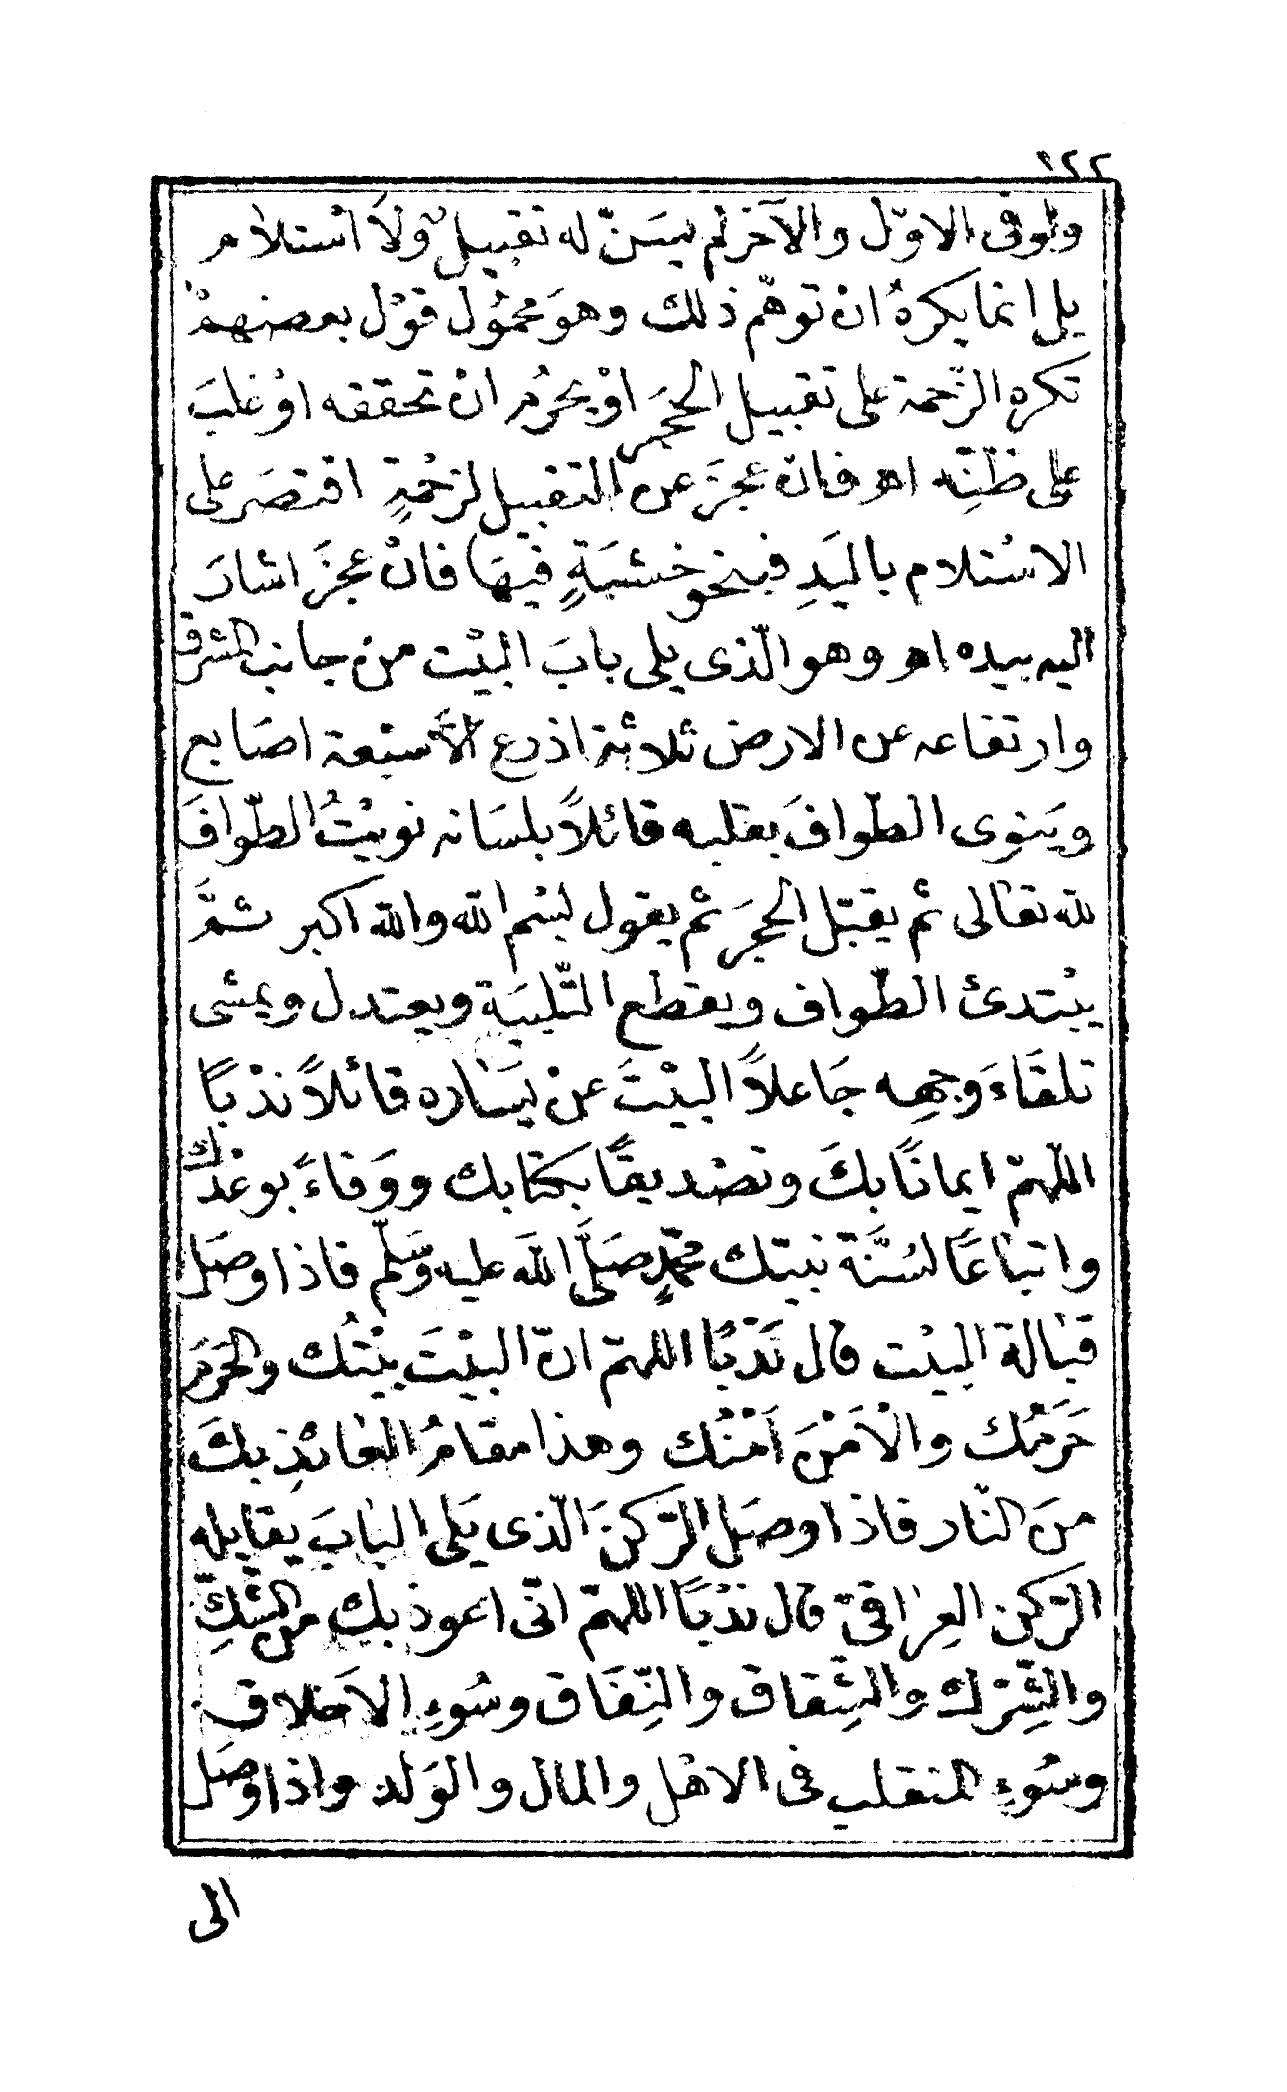 ١٢٢
ولو فى الاوّل والآخر لم يسَنّ له تقبيل ولَا اسْتلام
بل انما يكرهُ انْ توهّم ذلك وهوَ محمُول قوْل بعضهمْ
تكره الزّحمة على تقبيل الحجَر اوْ يحرُم انْ تحققه اوْ غلبَ
على ظنّه اهـ فان عجزَ عن التقبيل لزحْمةٍ اقتصَر على
الاسْتلام باليَدِ فبنحو خشبَةٍ فيهَا فانْ عجزَ اشارَ
اليه بيده اهـ وهو الّذى يلى بابَ البيْت من جانب المشرق
وارتفاعه عن الارض ثلاثة اذرع الّا سبْعة اصَابع
ويَنوِى الطوافَ بقلبه قائلاً بلسَانه نويْتُ الطّوافَ
لله تعالى ثم يقبّل الحجَر ثم يقول بسْم الله والله اكبر ثمَّ
يبْتدئ الطّواف ويقطع التّلبيَة ويعتدل ويمشى
تلقَاءَ وَجهِه جَاعلاً البيْتَ عنْ يسَاره قائلاً ندْبًا
اللّهمّ ايمانًا بكَ وتصْديقًا بكتابك ووَفاءً بوعْدك
واتباعًا لسُنَّة نبيّك محمّدٍ صَلَّى اللّه عليه وسَلّم فاذا وصَل
قبالة البيْت قال نَدْبًا اللهمّ انّ البيْتَ بيْتُك والحَرَمَ
حَرَمُك والْاَمْنَ اَمْنُك وهذا مقامُ العائذِ بكَ
منَ النّار فاذا وصَل الرّكنَ الّذى يَلى البابَ يقابله
الرّكن العِراقىّ قال ندْبًا اللهمّ انّى اعوذ بك من الشّكِّ
والشِّرْك والشِّقاق والنِّفَاق وسُوءِ الاَخلاق
وسُوءِ المنقلب فى الاهْل والمال والوَلد واذا وصَل
الى